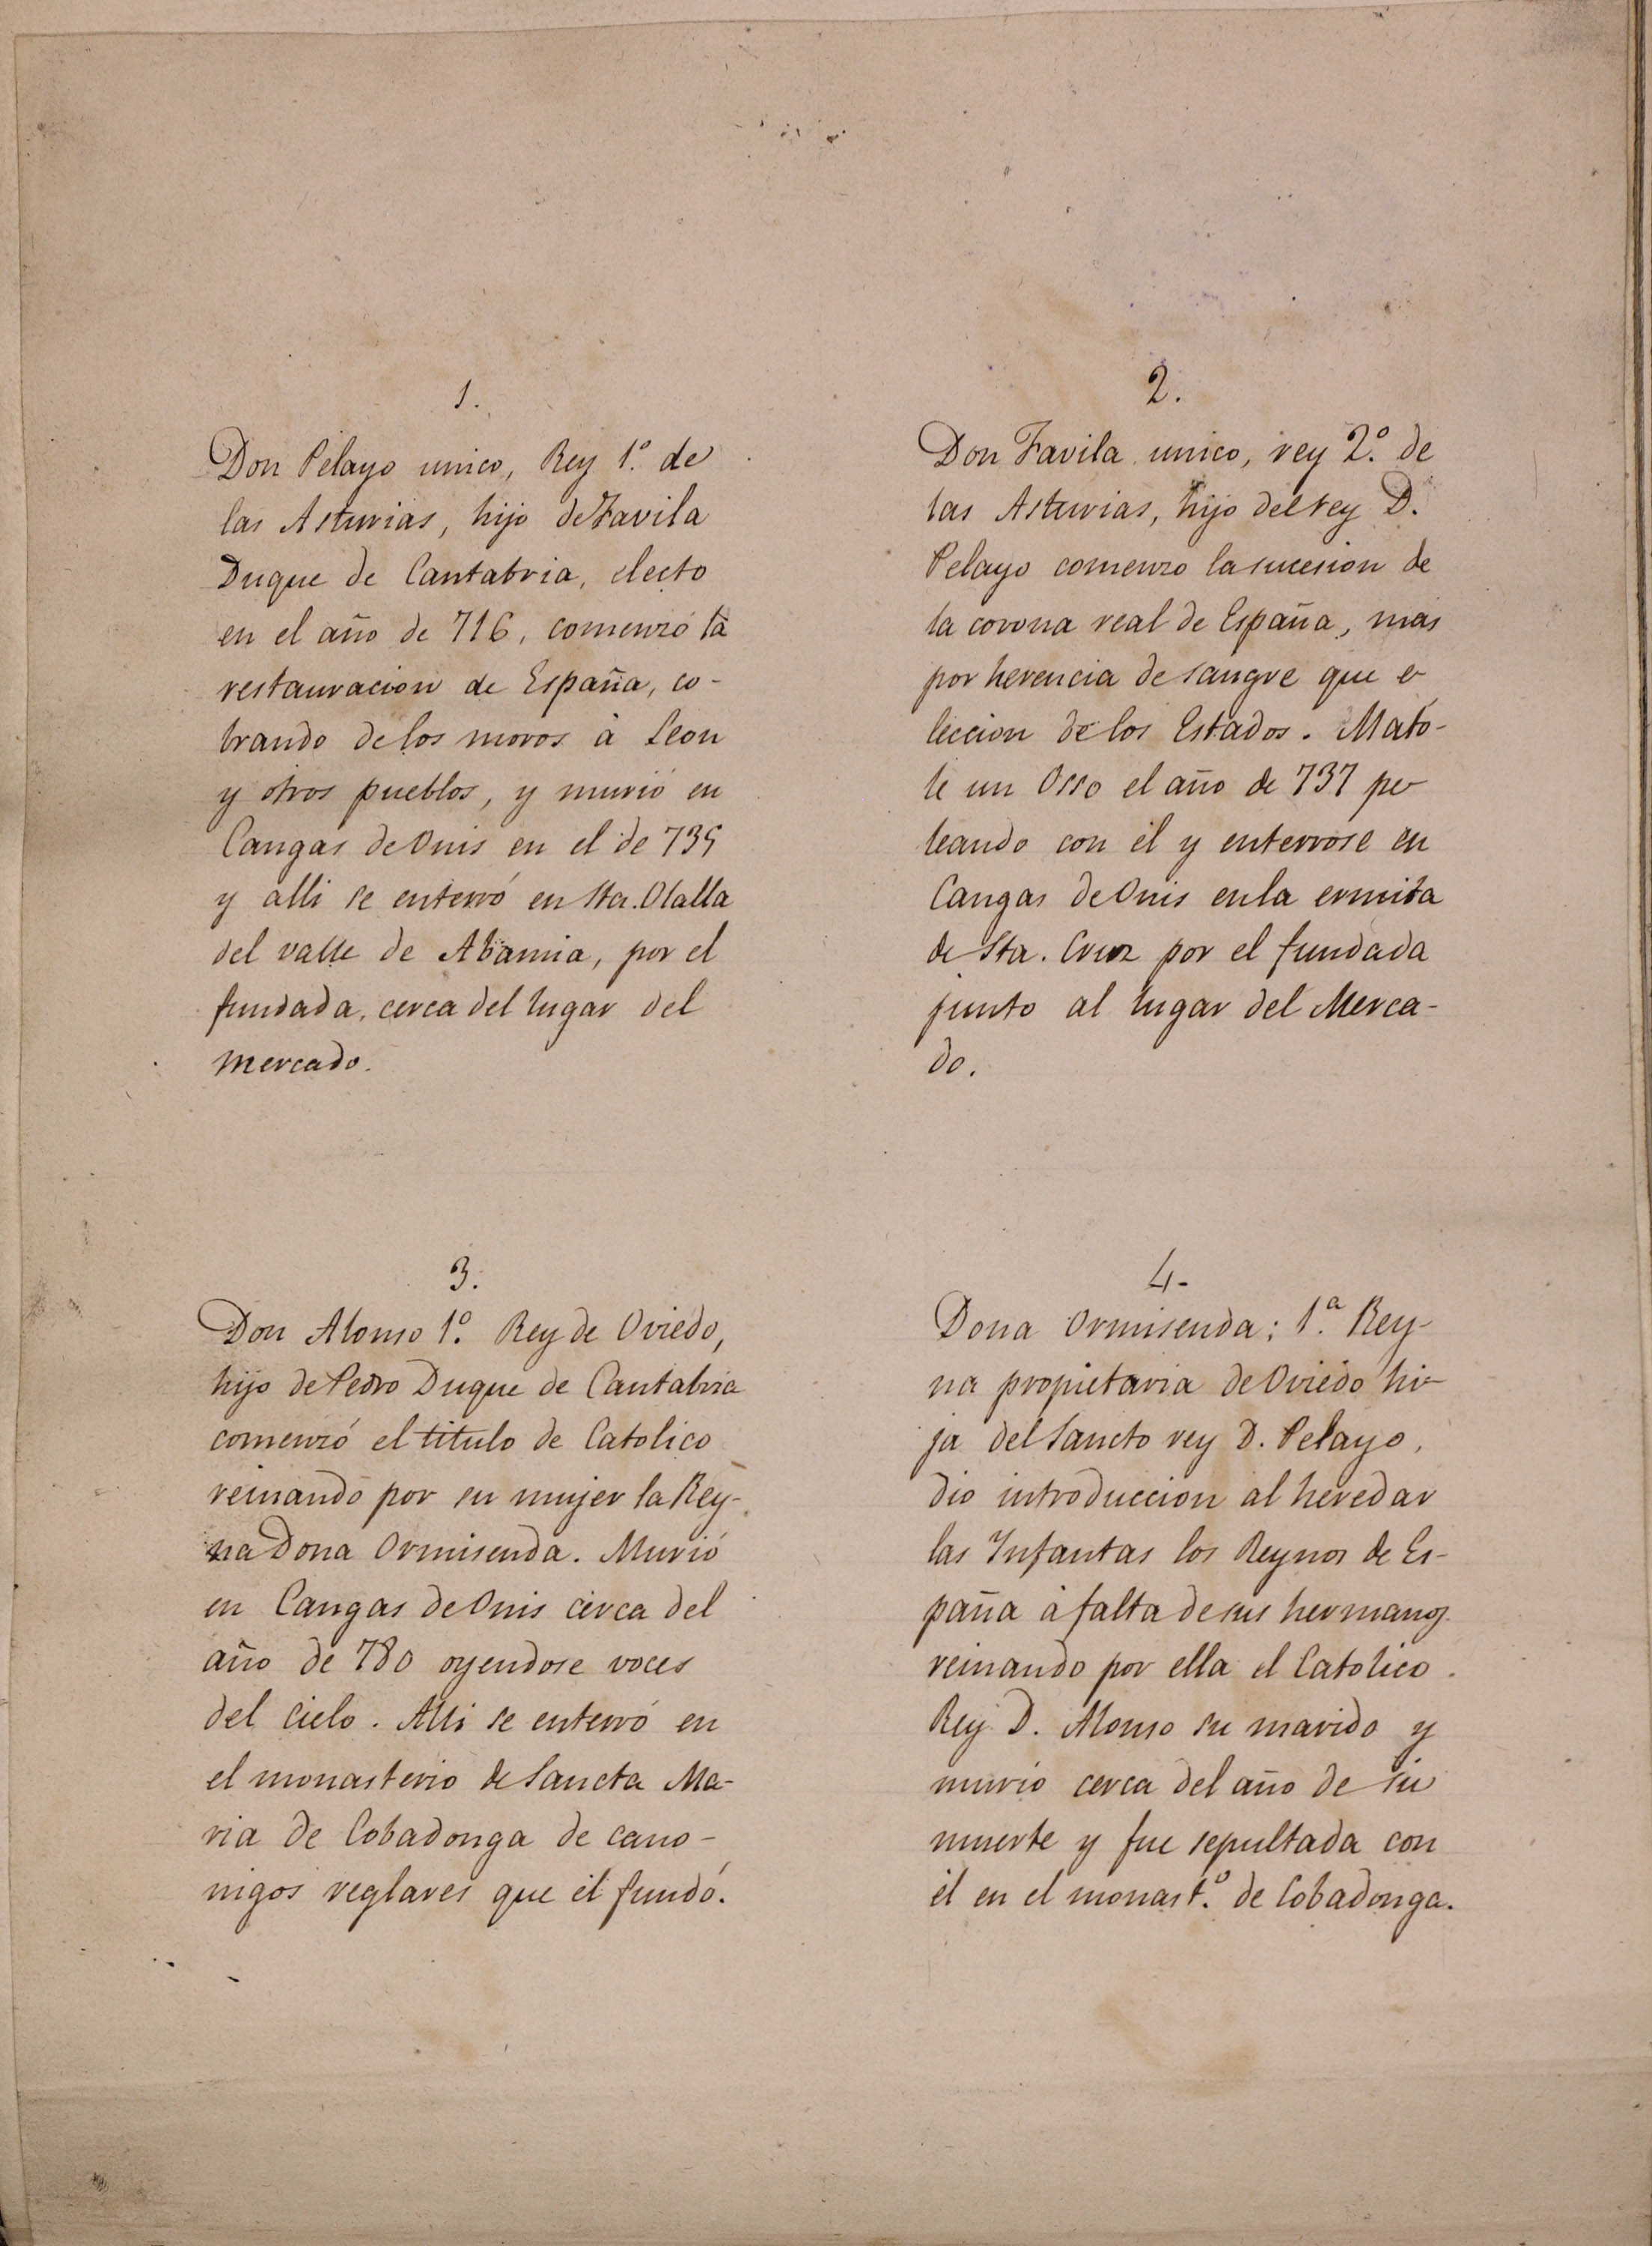 1.
Don Pelayo unico, Rey 1.º de
las Asturias, hijo de Favila
Duque de Cantabria, electo
en el año de 716, comenzó la
restauracion de España, co-
brando de los moros à Leon
y otros pueblos, y murió en
Cangas de Onis en el de 735
y alli se enterró en Sta. Olalla
del valle de Abamia, por el
fundada, cerca del lugar del
mercado.
2.
Don Favila unico, rey 2.º de
las Asturias, hijo del rey D.
Pelayo comenzo la sucesion de
la corona real de España, mas
por herencia de sangre que e-
leccion de los Estados. Mató-
le un Osso el año de 737 pe-
leando con él y enterrose en
Cangas de Onis en la ermita
de Sta. Cruz por el fundada
junto al lugar del Merca-
do.
3.
Don Alonso 1.º Rey de Oviedo,
hijo de Pedro Duque de Cantabria
comenzó el titulo de Catolico
reinando por su mujer la Rey-
na Dona Ormisenda. Murió
en Cangas de Onis cerca del
año de 780 oyendose voces
del cielo. Alli se enterró en
el monasterio de Sancta Ma-
ria de Cobadonga de cano-
nigos reglares que él fundó.
4.
Dona Ormisenda; 1.ª Rey-
na propietaria de Oviedo hi-
ja del Sancto rey D. Pelayo,
dio introduccion al heredar
las Infantas los Reynos de Es-
paña à falta de sus hermanos
reinando por ella el Catolico
Rey D. Alonso su marido y
murio cerca del año de su
muerte y fue sepultada con
él en el monast.º de Cobadonga.